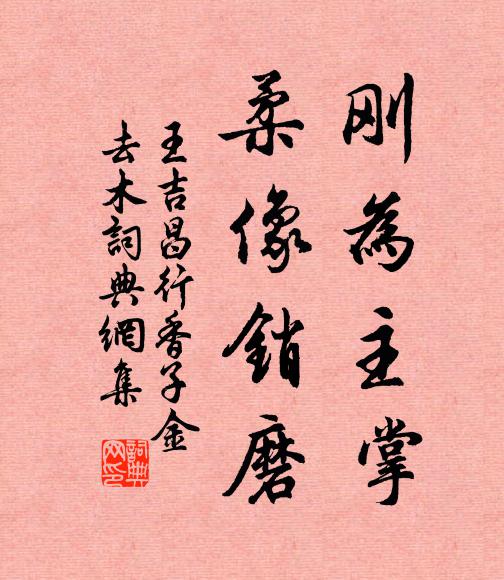 刚為主掌
柔像銷磨
王吉昌行香子金
去木詞典網集
詞典
网印